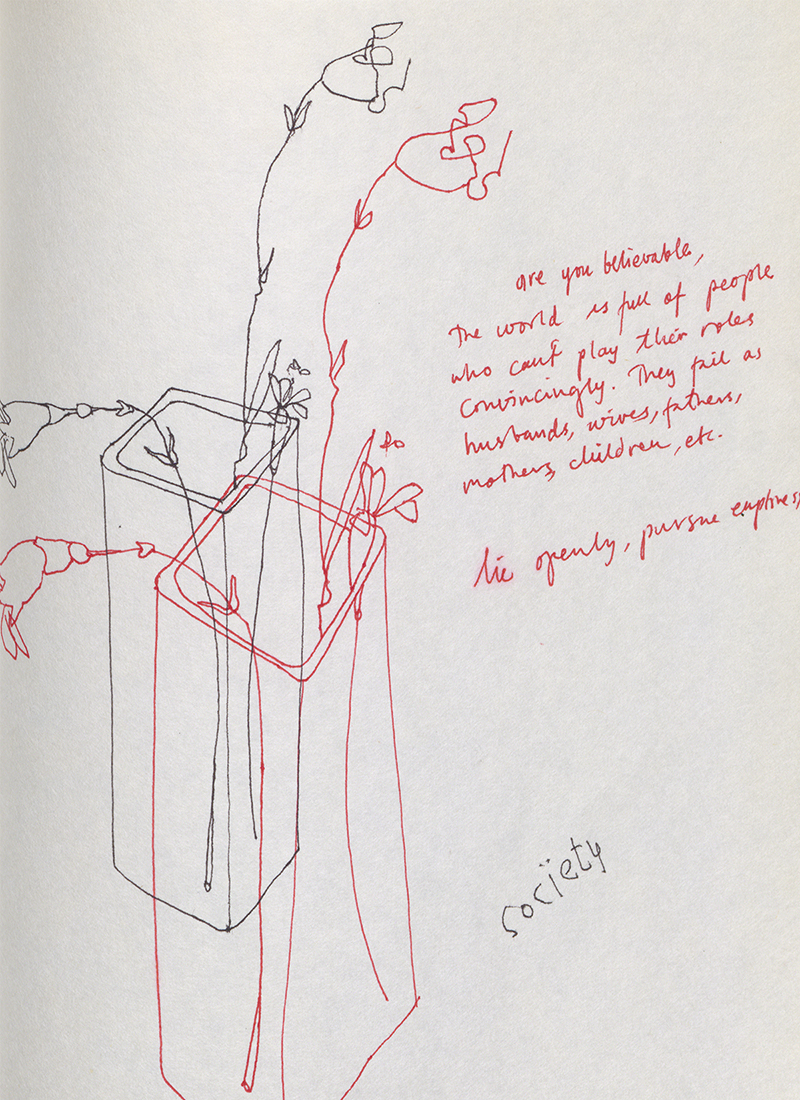 are you believable,
The world is full of people
who can't play their roles
convincingly. They fail as
husbands, wives, fathers,
mothers, children, etc.
lie openly, pursue emptiness,
sociëty